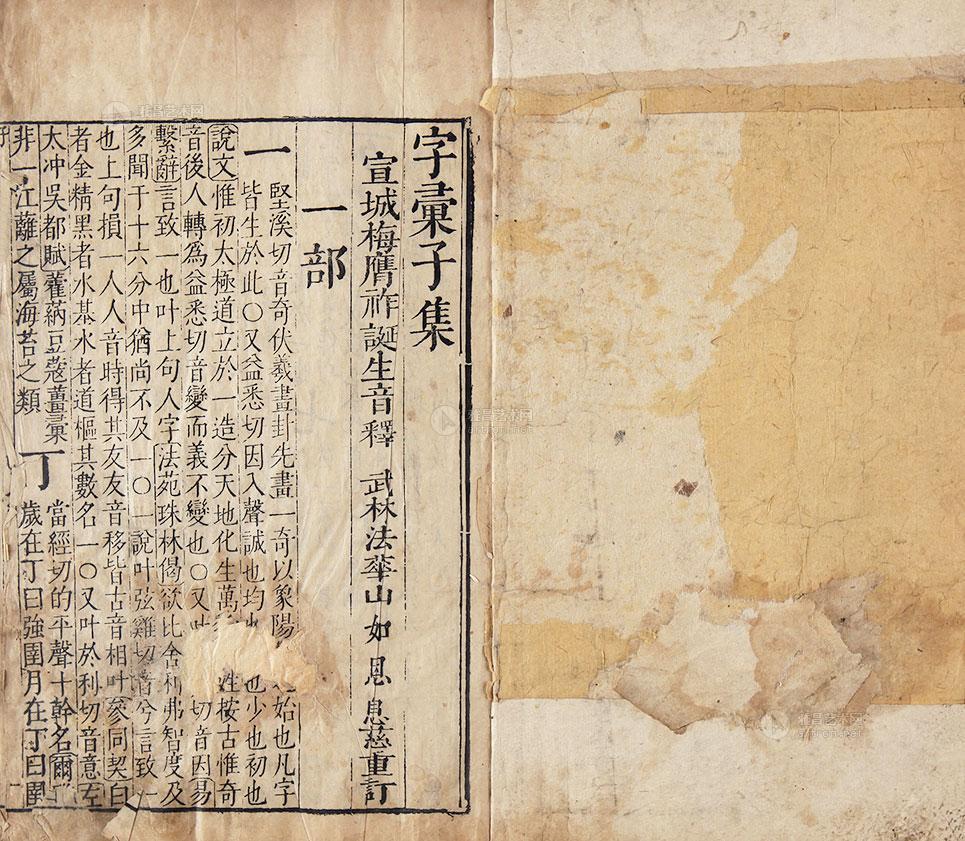 字彙子集
宣城梅膺祚誕生音釋 武林法華山如恩息慈重訂
一部
一 堅溪切音奇伏羲畫卦先畫一奇以象陽 始也凡字
皆生於此〇又益悉切因入聲誠也均也 也少也初也
說文惟初太極道立於一造分天地化生萬 姓按古惟奇
音後人轉爲益悉切音變而義不變也〇又叶 切音因易
繫辭言致一也叶上句人字法苑珠林偈欲比舍利弗智度及
多聞于十六分中猶尚不及一〇一說叶弦雞切音兮言致一
也上句損一人人音時得其友友音移皆古音相叶參同契白
者金精黑者水基水者道樞其數名一〇又叶於利切音意左
太冲吳都賦藿蒳豆蔻薑彙
非一江蘺之屬海苔之類 丁 當經切的平聲十幹名爾
歲在丁曰強圉月在丁曰圉
雅昌艺术网
雅昌艺术网
雅昌艺术网